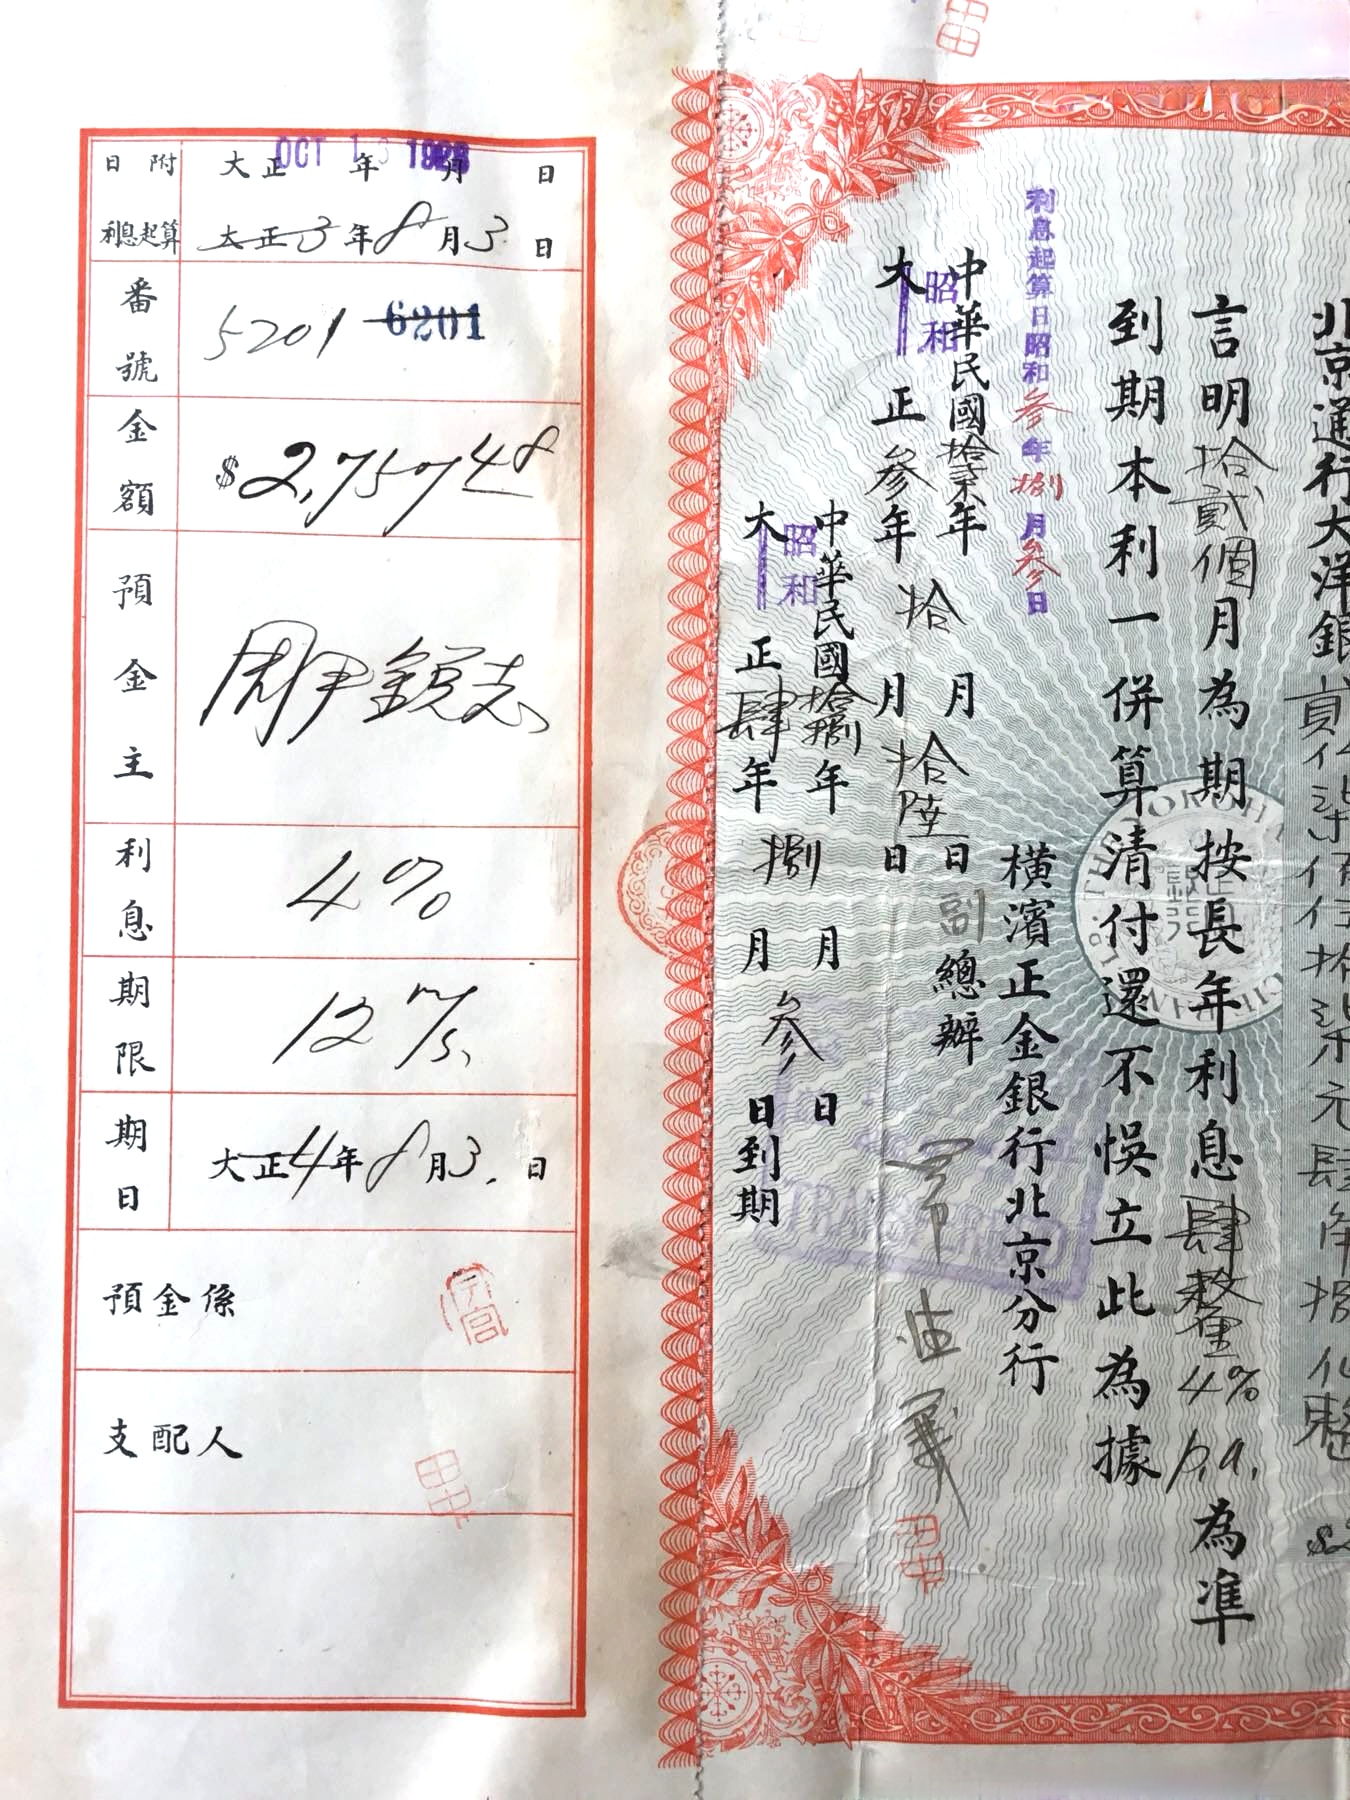 日附 大正 年 月 日
OCT 1 1928
利息起算 大正 3 年 8 月 3 日
番號 5201 6201
金額 $2,757.48
預金主 周尹銳志
利息 4%
期限 12 m/s,
期日 大正 4 年 8 月 3 日
預金係
支配人
北京通行大洋銀貳仟柒佰伍拾柒元肆角捌仙整
言明拾貳個月為期按長年利息肆釐4% p.a.為準
到期本利一併算清付還不悞立此為據
利息起算日昭和叁年捌月叁日
橫濱正金銀行北京分行
中華民國拾柒年 月 日
大正 昭和 叁年拾月拾陸日
副總辦
中華民國拾捌年 月 日
大正 昭和 肆年捌月叁日到期
TRANSFERRED